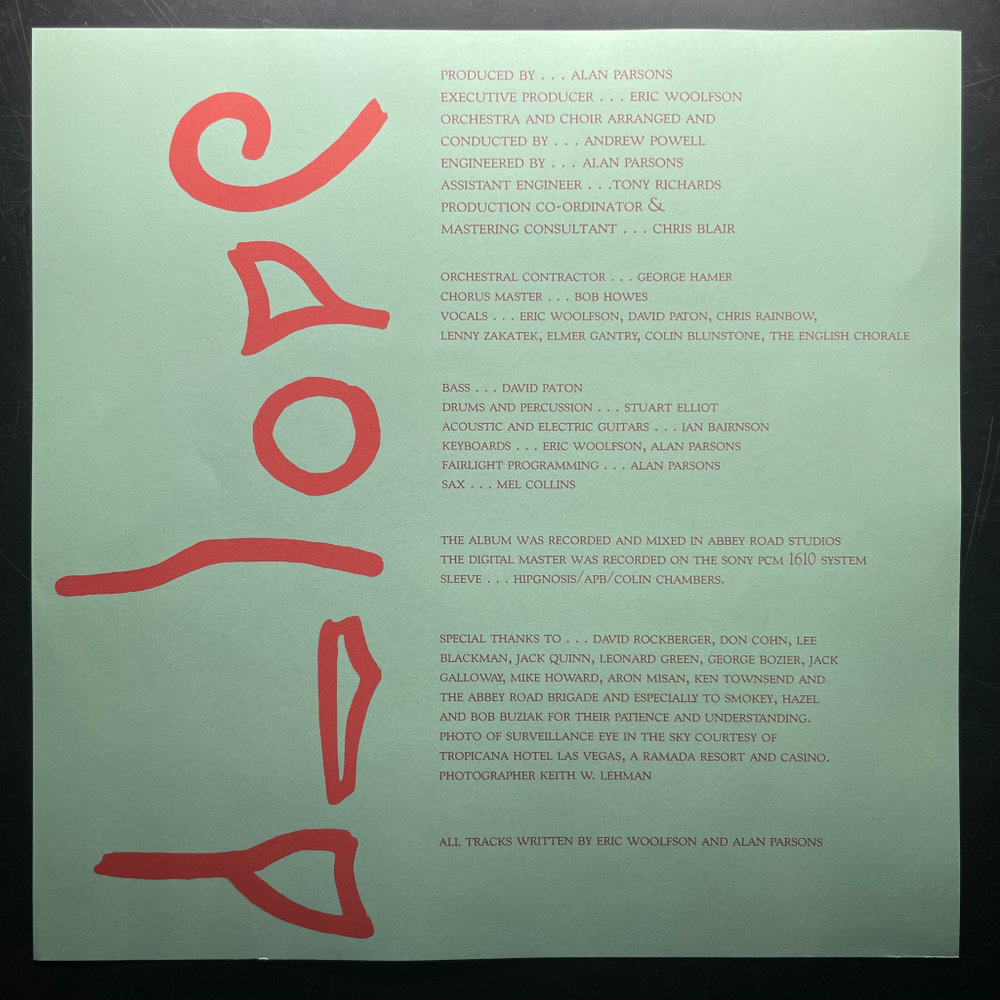 PRODUCED BY . . . ALAN PARSONS
EXECUTIVE PRODUCER . . . ERIC WOOLFSON
ORCHESTRA AND CHOIR ARRANGED AND
CONDUCTED BY . . . ANDREW POWELL
ENGINEERED BY . . . ALAN PARSONS
ASSISTANT ENGINEER . . .TONY RICHARDS
PRODUCTION CO-ORDINATOR &
MASTERING CONSULTANT . . . CHRIS BLAIR
ORCHESTRAL CONTRACTOR . . . GEORGE HAMER
CHORUS MASTER . . . BOB HOWES
VOCALS . . . ERIC WOOLFSON, DAVID PATON, CHRIS RAINBOW,
LENNY ZAKATEK, ELMER GANTRY, COLIN BLUNSTONE, THE ENGLISH CHORALE
BASS . . . DAVID PATON
DRUMS AND PERCUSSION . . . STUART ELLIOT
ACOUSTIC AND ELECTRIC GUITARS . . . IAN BAIRNSON
KEYBOARDS . . . ERIC WOOLFSON, ALAN PARSONS
FAIRLIGHT PROGRAMMING . . . ALAN PARSONS
SAX . . . MEL COLLINS
THE ALBUM WAS RECORDED AND MIXED IN ABBEY ROAD STUDIOS
THE DIGITAL MASTER WAS RECORDED ON THE SONY PCM 1610 SYSTEM
SLEEVE . . . HIPGNOSIS/APB/COLIN CHAMBERS.
SPECIAL THANKS TO . . . DAVID ROCKBERGER, DON COHN, LEE
BLACKMAN, JACK QUINN, LEONARD GREEN, GEORGE BOZIER, JACK
GALLOWAY, MIKE HOWARD, ARON MISAN, KEN TOWNSEND AND
THE ABBEY ROAD BRIGADE AND ESPECIALLY TO SMOKEY, HAZEL
AND BOB BUZIAK FOR THEIR PATIENCE AND UNDERSTANDING.
PHOTO OF SURVEILLANCE EYE IN THE SKY COURTESY OF
TROPICANA HOTEL LAS VEGAS, A RAMADA RESORT AND CASINO.
PHOTOGRAPHER KEITH W. LEHMAN
ALL TRACKS WRITTEN BY ERIC WOOLFSON AND ALAN PARSONS